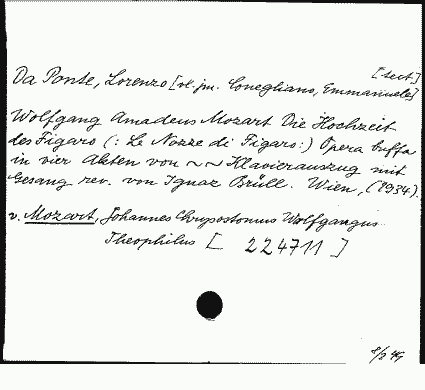 [text]
Da Ponte, Lorenzo [vl. jm. Conegliano, Emmanuele]
Wolfgang Amadeus Mozart Die Hochzeit
des Figaro (: Le Nozze di Figaro :) Opera buffa
in vier Akten von ~ ~ Klavierauszug mit
Gesang rev. von Ignaz Brüll. Wien, (1934).
v. Mozart, Johannes Chrysostomus Wolfgangus
Theophilus [ 224711 ]